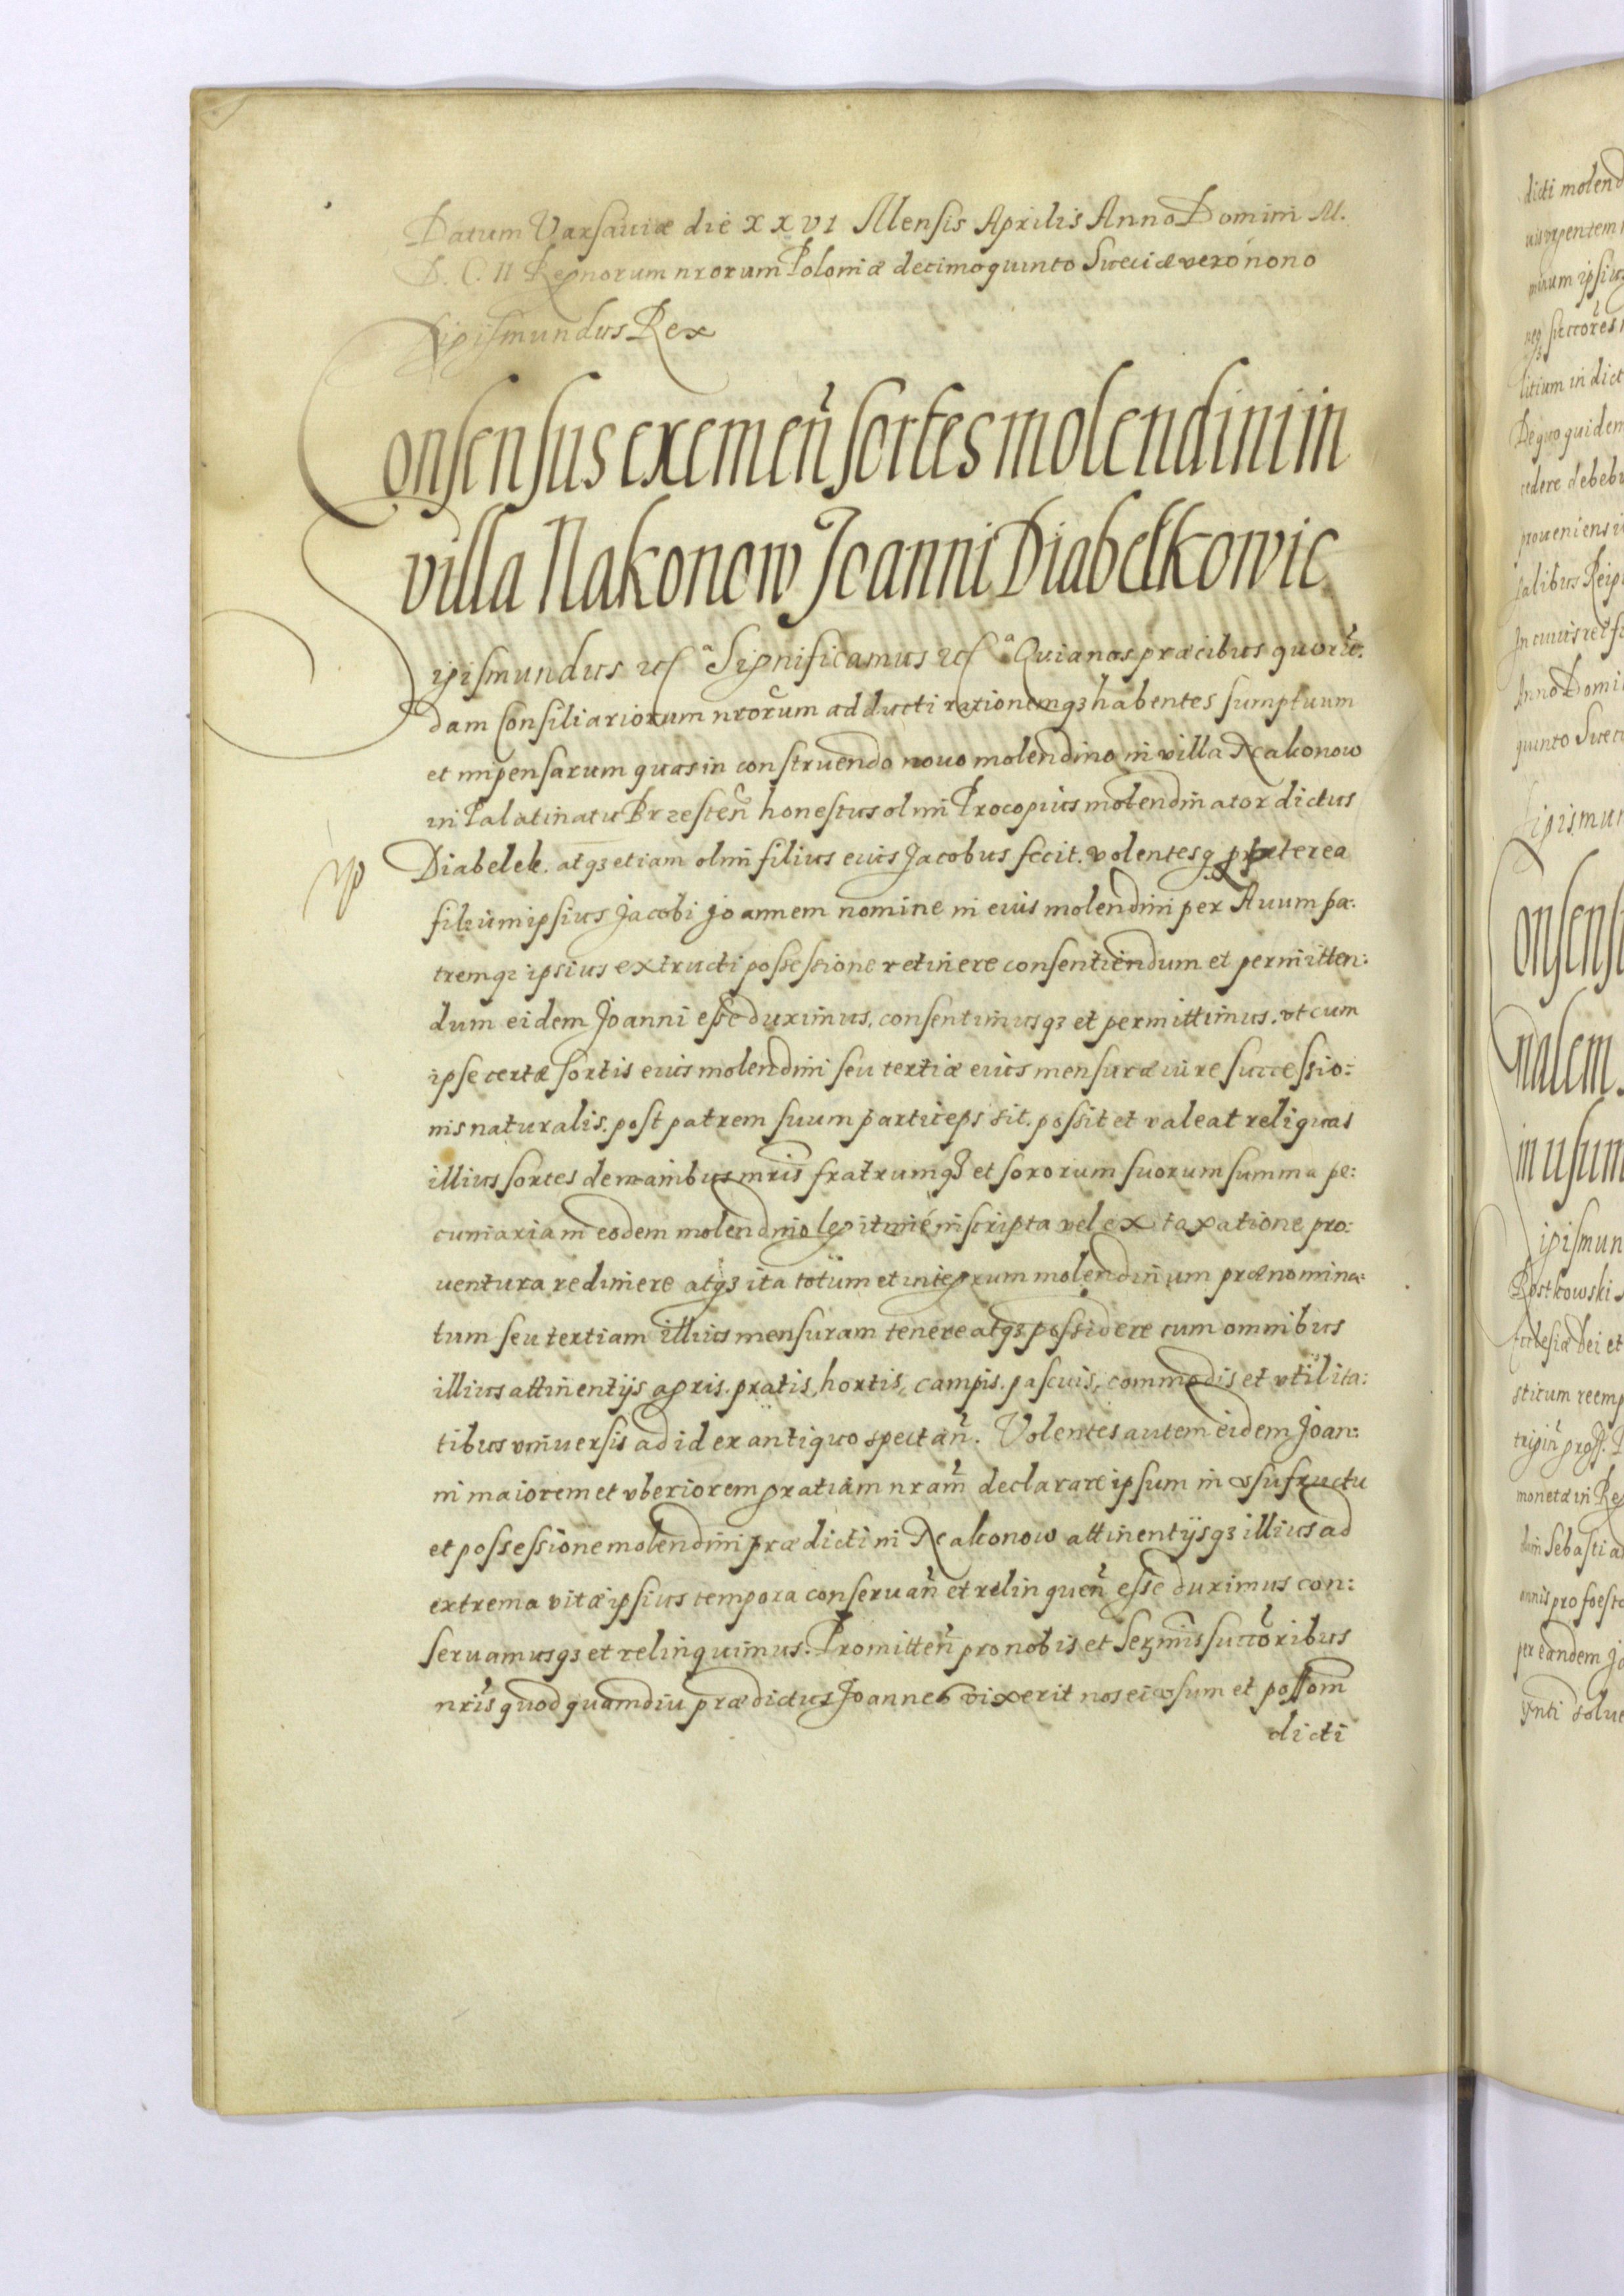 Datum Varsauiæ die XXVI Mensis Aprilis Anno Domini M.
D. C. II Regnorum nrorum Poloniæ decimoquinto Sueciæ veró nono
Sigismundus Rex
Consensus exemen̄ sortes molendini in
villa Nakonow Joanni Diabelkowic
Sigismundus etc̃ª Significamus etc̃ª Quia nos præcibus quorū:
dam Consiliariorum nrorum adducti rationemqȝ habentes sumptuum
et impensarum quas in construendo nouo molendino in villa Nakonow
in Palatinatu Brzesten̄ honestus olim Procopius molendinator dictus
Diabelek. atqȝ etiam olim filius eius Jacobus fecit. volentesqȝ præterea
filium ipsius Jacobi Joannem nomine in eius molendini per Auum pa:
tremqȝ ipsius extructi possessione retinere consentiendum et permitten:
dum eidem Joanni esse duximus, consentimusqȝ et permittimus. vt cum
ipse certæ sortis eius molendini seu tertiæ eius mensuræ iure successio:
nis naturalis. post patrem suum particeps sit. possit et valeat reliquas
illius sortes de manibus mris fratrumqȝ et sororum suorum summa pe:
cuniaria in eodem molendino legitimé inscripta vel ex taxatione pro:
uentura redimere atqȝ ita totum et integrum molendinum prænomina:
tum seu tertiam illius mensuram tenere atqȝ possidere cum omnibus
illius attinentijs agris. pratis, hortis, campis. pascuis, commodis et vtilita:
tibus vniuersis ad id ex antiquo spectan̄. Volentes autem eidem Joan:
ni maiorem et vberiorem gratiam nram̄ declarare ipsum in vsufructu
et possessione molendini prædicti in Nakonow attinentijsqȝ illius ad
extrema vitæ ipsius tempora conseruan̄ et relinquen̄ esse duximus con:
seruamusqȝ et relinquimus. Promitten̄ pro nobis et Sermis succoribus
nris quod quamdiu prædictus Joannes vixerit nos ei vsum et possom
dicti